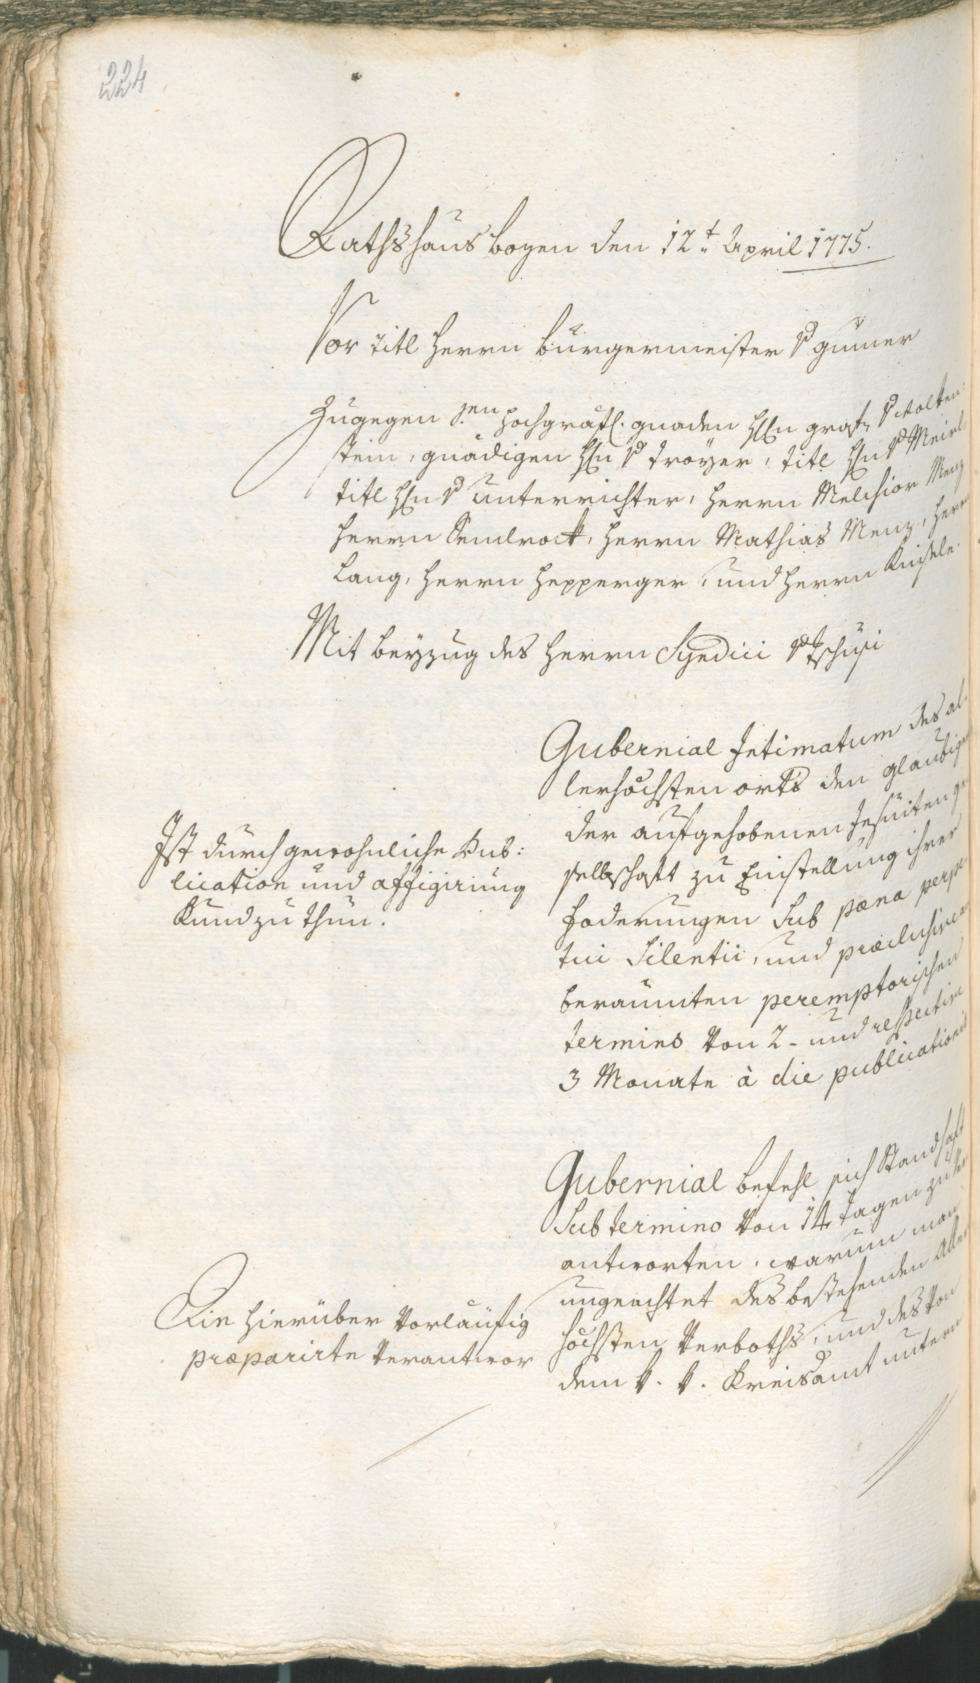 224
Rathshaus bozen den 12t April 1775.
Vor titl Herrn burgermeister v gumer
Zugegen Sen hochgräfl. gnaden Hln graf v Wolken
stein, gnädigen Hln v troyer, titl Hln v Meirl
titl Hln v unterrichter, Herrn Melchior Menz
Herrn Hendrock, Herrn Mathias Menz, Herrn
Lang, Herrn Hepperger, und Herrn Knisele.
Mit beyzug des Herrn Syndici v Tschusi
Gubernial Intimatum des al
lerhöchsten orts den glaubige
der aufgehobenen Jesuiten ge
sellschaft zu Einstellung ihrer
foderungen sub pæna perpe
tui silentii, und præclusive
beraumten peremptorischen
termins von 2- und respective
3 Monate à die publicationis
Ist durch gewohnliche Pub:
lication und affigirung
Kund zu thun.
Gubernial befehl sich standhaft
sub termino von 14 tagen zu ver
antworten, warum man
ungeachtet des bestehenden Aller
höchsten Verboths, und des von
dem k. k. Kreisamt unterm
Die hierüber vorläufig
præparirte verantwor